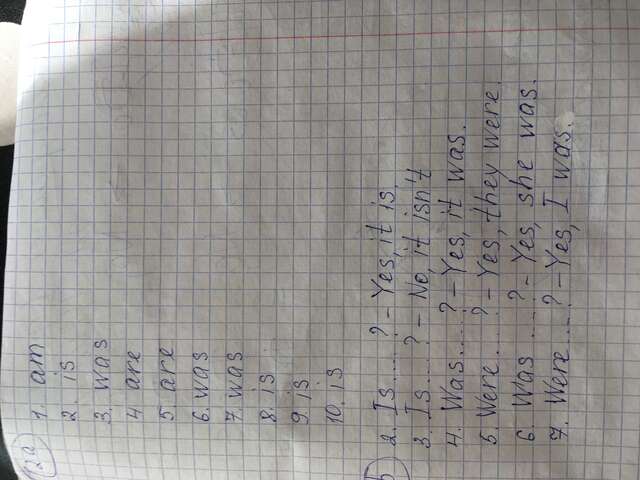 12a
1. am
2. is
3. was
4 are
5. are
6. was
7. was
8. is
9 is
10. is
b
2. Is....? - Yes, it is.
3. Is....? - No, it isn't
4. Was....? - Yes, it was.
5. Were....? - Yes, they were.
6. Was ....? - Yes, she was.
7. Were....? - Yes, I was.